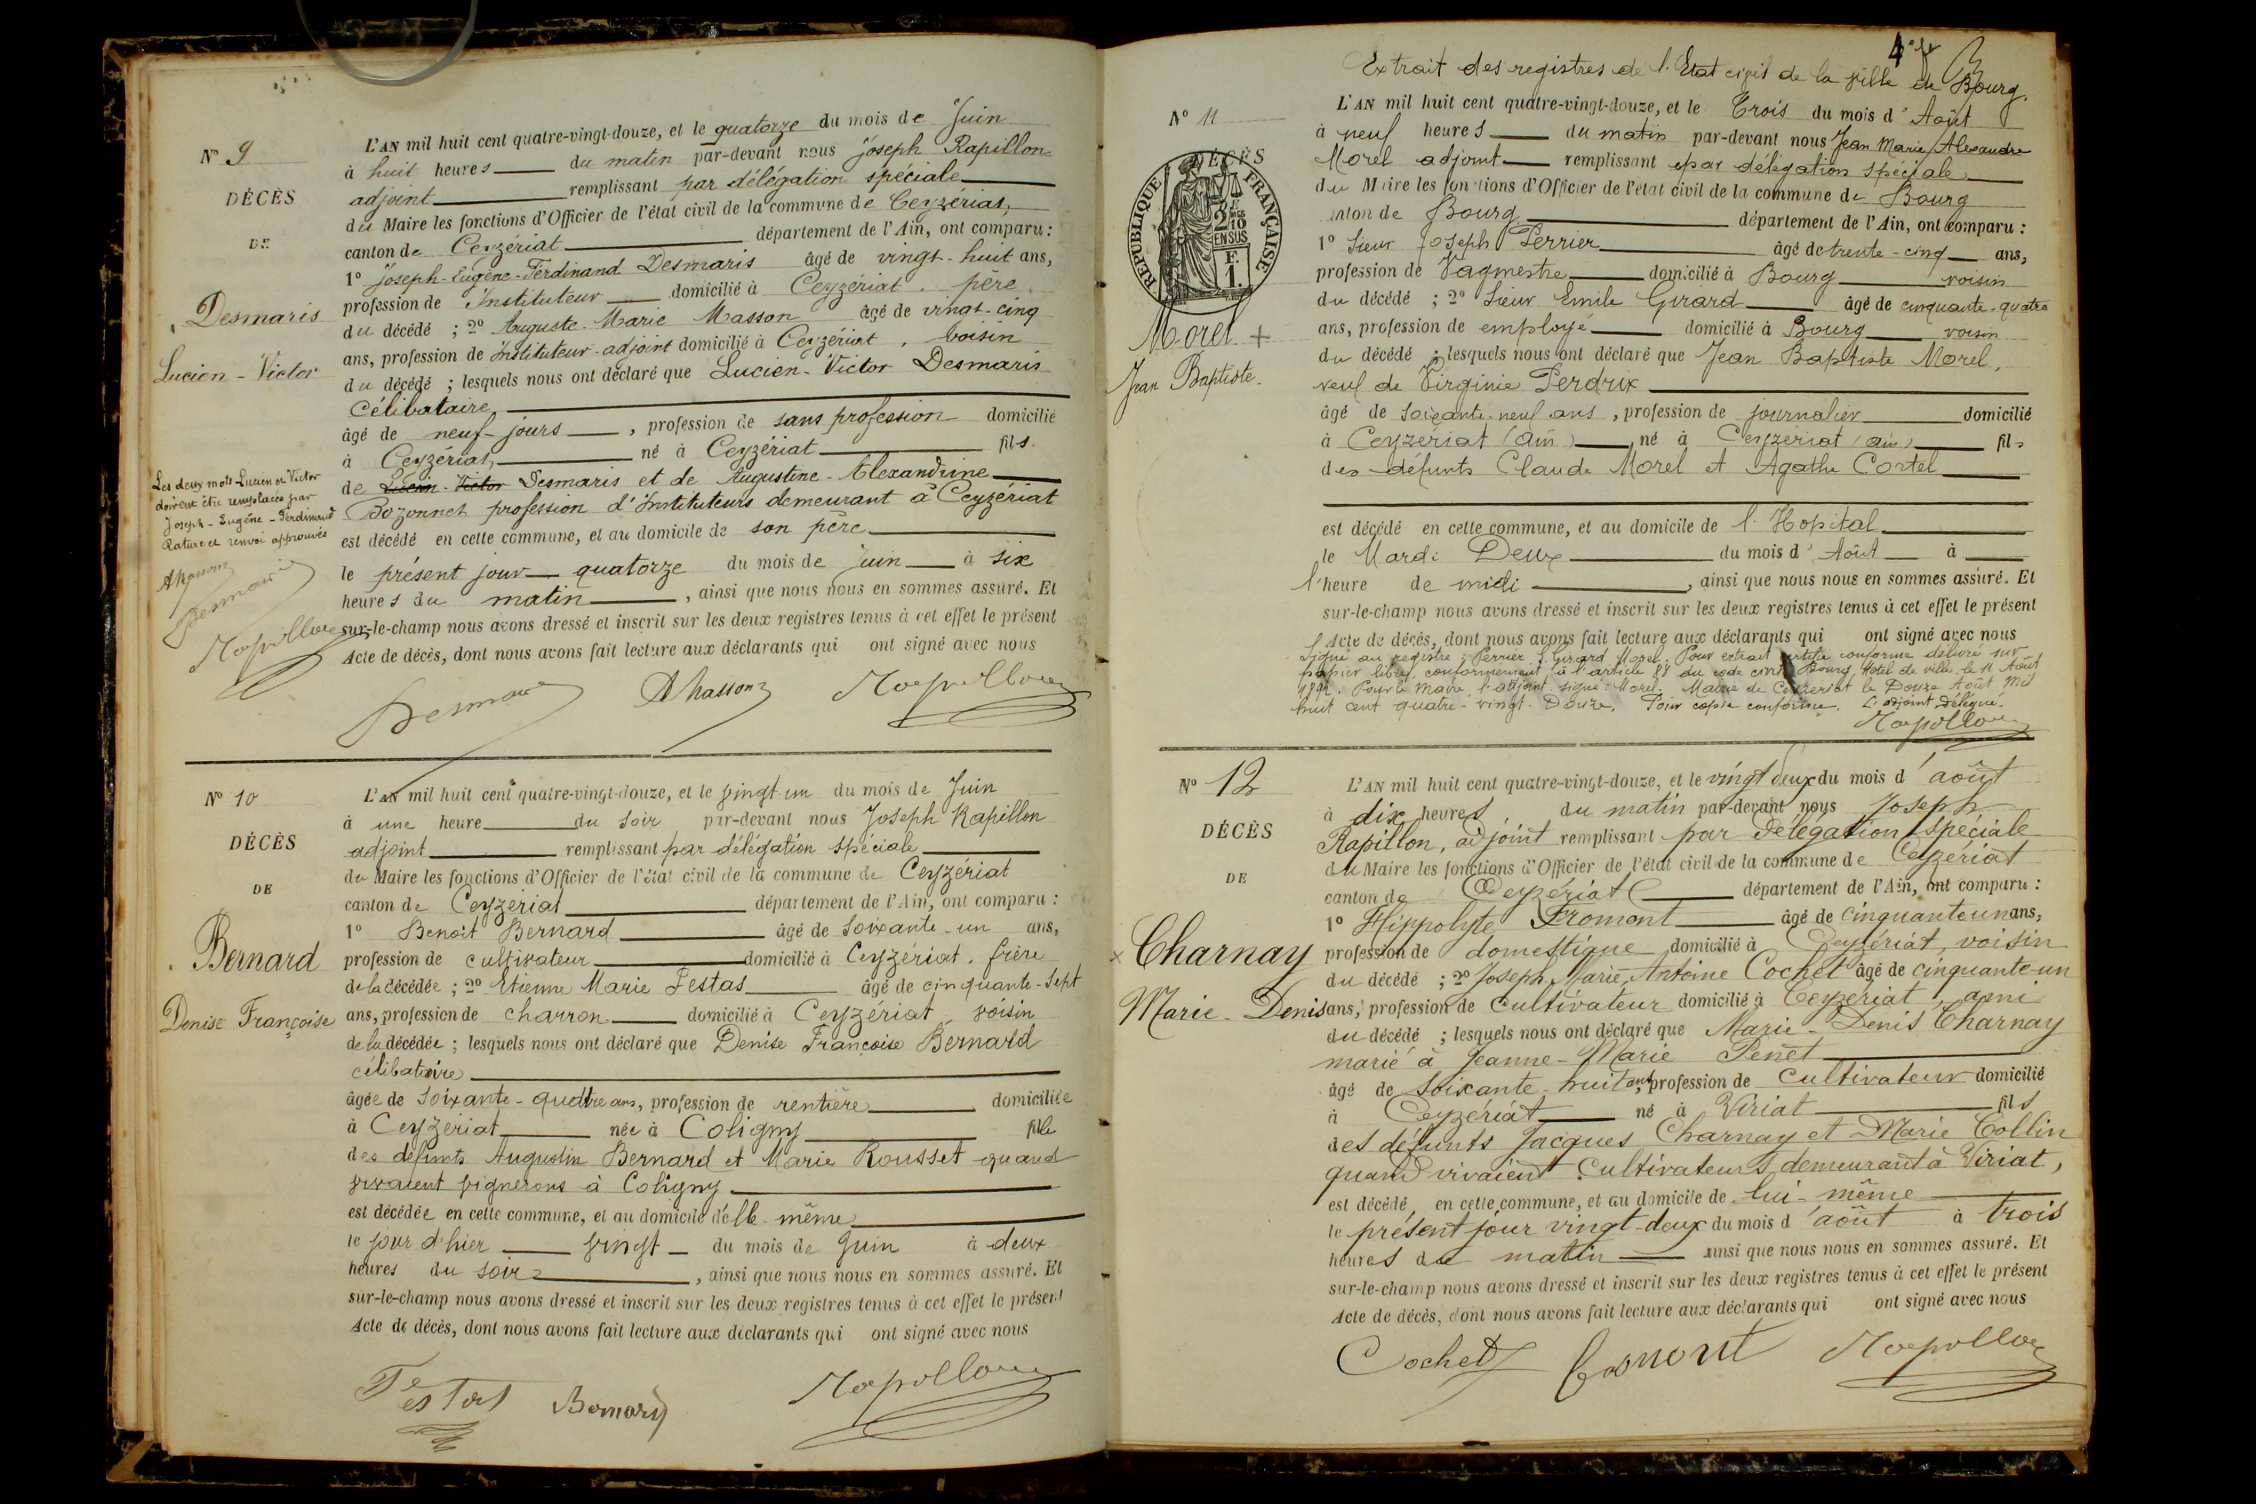 N° 9
DÉCÈS
DE
Desmaris
Lucien - Victor
L'AN mil huit cent quatre-vingt-douze, et le quatorze du mois de Juin
à huit heures du matin par-devant nous Joseph Rapillon
adjoint remplissant par délégation spéciale
du Maire les fonctions d'Officier de l'état civil de la commune de Ceyzériat,
canton de Ceyzériat département de l'Ain, ont comparu :
1° Joseph-Eugène-Ferdinand Desmaris âgé de vingt-huit ans,
profession de Instituteur domicilié à Ceyzériat. père
du décédé ; 2° Auguste-Marie Masson âgé de vingt-cinq
ans, profession de Instituteur-adjoint domicilié à Ceyzériat, voisin
du décédé ; lesquels nous ont déclaré que Lucien-Victor Desmaris
Célibataire
âgé de neuf-jours, profession de sans profession domicilié
à Ceyzériat, né à Ceyzériat fils
de Lucien-Victor Desmaris et de Augustine-Alexandrine
profession d'Instituteurs demeurant à Ceyzériat
est décédé en cette commune, et au domicile de son père
le présent jour quatorze du mois de juin à six
heures du matin, ainsi que nous nous en sommes assuré. Et
sur-le-champ nous avons dressé et inscrit sur les deux registres tenus à cet effet le présent
Acte de décès, dont nous avons fait lecture aux déclarants qui ont signé avec nous
Les deux mots Lucien et Victor
doivent être remplacés par
Joseph-Eugène-Ferdinand
Rature et renvoi approuvés
AMasson
Desmaris
Rapillon
Desmaris AMasson Rapillon
N° 10
DÉCÈS
DE
Bernard
Denise Françoise
L'AN mil huit cent quatre-vingt-douze, et le vingt-un du mois de Juin
à une heure du soir par-devant nous Joseph Rapillon
adjoint remplissant par délégation spéciale
du Maire les fonctions d'Officier de l'état civil de la commune de Ceyzériat
canton de Ceyzériat département de l'Ain, ont comparu :
1° Benoit Bernard âgé de soixante-un ans,
profession de cultivateur domicilié à Ceyzériat. frère
de la décédée ; 2° Etienne Marie Festas âgé de cinquante-sept
ans, profession de charron domicilié à Ceyzériat voisin
de la décédée ; lesquels nous ont déclaré que Denise Françoise Bernard
célibataire
âgée de soixante-quatre ans, profession de rentière domiciliée
à Ceyzériat née à Coligny fille
des défunts Augustin Bernard et Marie Rousset quand
vivaient vignerons à Coligny
est décédée en cette commune, et au domicile d'elle-même
le jour d'hier vingt du mois de Juin à deux
heures du soir, ainsi que nous nous en sommes assuré. Et
sur-le-champ nous avons dressé et inscrit sur les deux registres tenus à cet effet le présent
Acte de décès, dont nous avons fait lecture aux déclarants qui ont signé avec nous
Festas Bernard Rapillon
4
Extrait des registres de l'Etat civil de la ville de Bourg.
N° 11
DÉCÈS
RÉPUBLIQUE FRANÇAISE
EN SUS
F.
1.
Morel +
Jean Baptiste.
L'AN mil huit cent quatre-vingt-douze, et le Trois du mois d'Août
à neuf heures du matin par-devant nous Jean Marie Alexandre
Morel adjoint remplissant par délégation spéciale
du Maire les fonctions d'Officier de l'état civil de la commune de Bourg
canton de Bourg département de l'Ain, ont comparu :
1° Sieur Joseph Perrier âgé de trente-cinq ans,
profession de Vagmestre domicilié à Bourg voisin
du décédé ; 2° Sieur Emile Girard âgé de cinquante-quatre
ans, profession de employé domicilié à Bourg voisin
du décédé ; lesquels nous ont déclaré que Jean Baptiste Morel,
veuf de Virginie Perdrix
âgé de soixante-neuf ans, profession de journalier domicilié
à Ceyzériat (Ain), né à Ceyzériat (Ain) fils
des défunts Claude Morel et Agathe Cortel
est décédé en cette commune, et au domicile de l'Hopital
le Mardi Deux du mois d'Août à
l'heure de midi, ainsi que nous nous en sommes assuré. Et
sur-le-champ nous avons dressé et inscrit sur les deux registres tenus à cet effet le présent
Acte de décès, dont nous avons fait lecture aux déclarants qui ont signé avec nous
Signé au registre : Perrier, E. Girard Morel. Pour extrait certifié conforme délivré sur
papier libre, conformément à l'article 88 du code civil Bourg Hôtel de ville le 11 Août
1892. Pour le Maire, l'adjoint signé : Morel. Mairie de Ceyzériat le Douze Août mil
huit cent quatre-vingt-Douze. Pour copie conforme. L'adjoint Délégué.
Rapillon
N° 12
DÉCÈS
DE
x Charnay
Marie-Denis
L'AN mil huit cent quatre-vingt-douze, et le vingt deux du mois d'août
à dix heures du matin par-devant nous Joseph
Rapillon, adjoint remplissant par délégation spéciale
du Maire les fonctions d'Officier de l'état civil de la commune de Ceyzériat
canton de Ceyzériat département de l'Ain, ont comparu :
1° Hippolyte Fromont âgé de cinquante un ans,
profession de domestique domicilié à Ceyzériat, voisin
du décédé ; 2° Joseph Marie Antoine Cochet âgé de cinquante-un
ans, profession de cultivateur domicilié à Ceyzériat, ami
du décédé ; lesquels nous ont déclaré que Marie-Denis Charnay
marié à Jeanne-Marie Penet
âgé de soixante-huit ans, profession de cultivateur domicilié
à Ceyzériat né à Viriat fils
des défunts Jacques Charnay et Marie Collin
quand vivaient cultivateurs demeurant à Viriat,
est décédé en cette commune, et au domicile de lui-même
le présent jour vingt-deux du mois d'août à trois
heures du matin ainsi que nous nous en sommes assuré. Et
sur-le-champ nous avons dressé et inscrit sur les deux registres tenus à cet effet le présent
Acte de décès, dont nous avons fait lecture aux déclarants qui ont signé avec nous
Cochet Fromont Rapillon